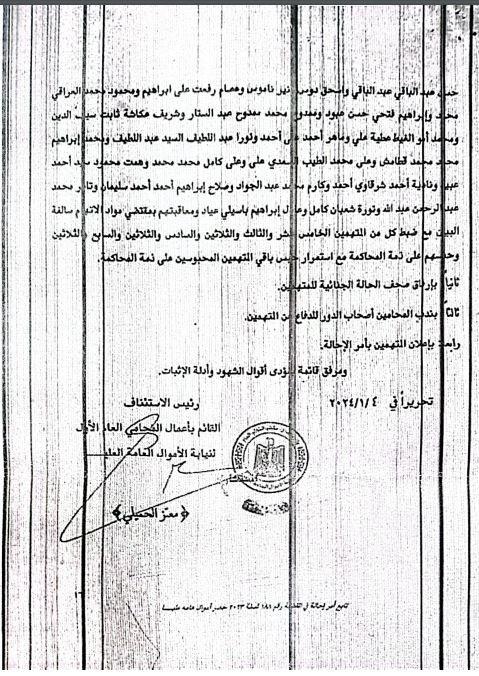 حسن عبد الباقي عبد الباقي واسحق دوس منير ناموس وعصام رفعت على ابراهيم ومحمود محمد العراقي
محمد وإبراهيم فتحي حسن عبود وممدوح محمد ممدوح عبد الستار وشريف عكاشة ثابت سيف الدين
ومحمد أبو الغيط عطية علي وماهر أحمد على أحمد ونورا عبد اللطيف السيد عبد اللطيف ومحمد إبراهيم
محمد محمد قطامش وعلى محمد الطيب السعدي على وعلى كامل محمد محمد وهمت محمود سيد أحمد
عبيد ونادية أحمد شرقاوي أحمد وكارم محمد عبد الجواد وصلاح إبراهيم أحمد أحمد سليمان وتامر محمد
عبد الرحمن عبد الله ونورة شعبان كامل إبراهيم باسيلي عياد ومعاقبتهم بمقتضي مواد الاتهام سالفة
البيان مع ضبط كل من المتهمين الخامس عشر والثالث والثلاثين والسادس والثلاثين والسابع والثلاثين
وحبسهم على ذمة المحاكمة مع استمرار حبس باقي المتهمين المحبوسين على ذمة المحاكمة.
ثانياً بإرفاق صحف الحالة الجنائية للمتهمين.
ثالثاً بندب المحامين أصحاب الدور للدفاع عن المتهمين.
رابعاً بإعلان المتهمين بأمر الإحالة.
ومرفق قائمة بمؤدى أقوال الشهود وأدلة الإثبات.
تحريراً في ٢٠٢٤/١/٤
رئيس الاستئناف
القائم بأعمال المحامي العام الأول
لنيابة الأموال العامة العليا
﴿معتز الحميلي﴾
تابع أمر إحالة في القضية رقم ١٨٨ لسنة ٢٠٢٣ حصر أموال عامه عليا